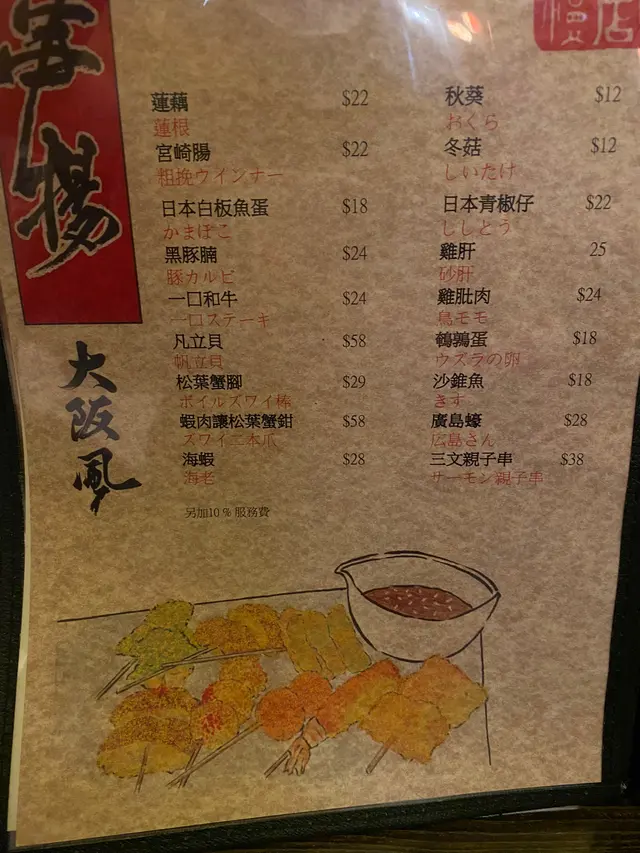 串揚
大阪風
慢店
蓮藕 $22
蓮根
宮崎腸 $22
粗挽ウインナー
日本白板魚蛋 $18
かまぼこ
黑豚腩 $24
豚カルビ
一口和牛 $24
一口ステーキ
凡立貝 $58
帆立貝
松葉蟹腳 $29
ボイルズワイ棒
蝦肉讓松葉蟹鉗 $58
ズワイ二本爪
海蝦 $28
海老
另加10 % 服務費
秋葵 $12
おくら
冬菇 $12
しいたけ
日本青椒仔 $22
ししとう
雞肝 25
砂肝
雞肶肉 $24
鳥モモ
鵪鶉蛋 $18
ウズラの卵
沙錐魚 $18
きす
廣島蠔 $28
広島さん
三文親子串 $38
サーモン親子串